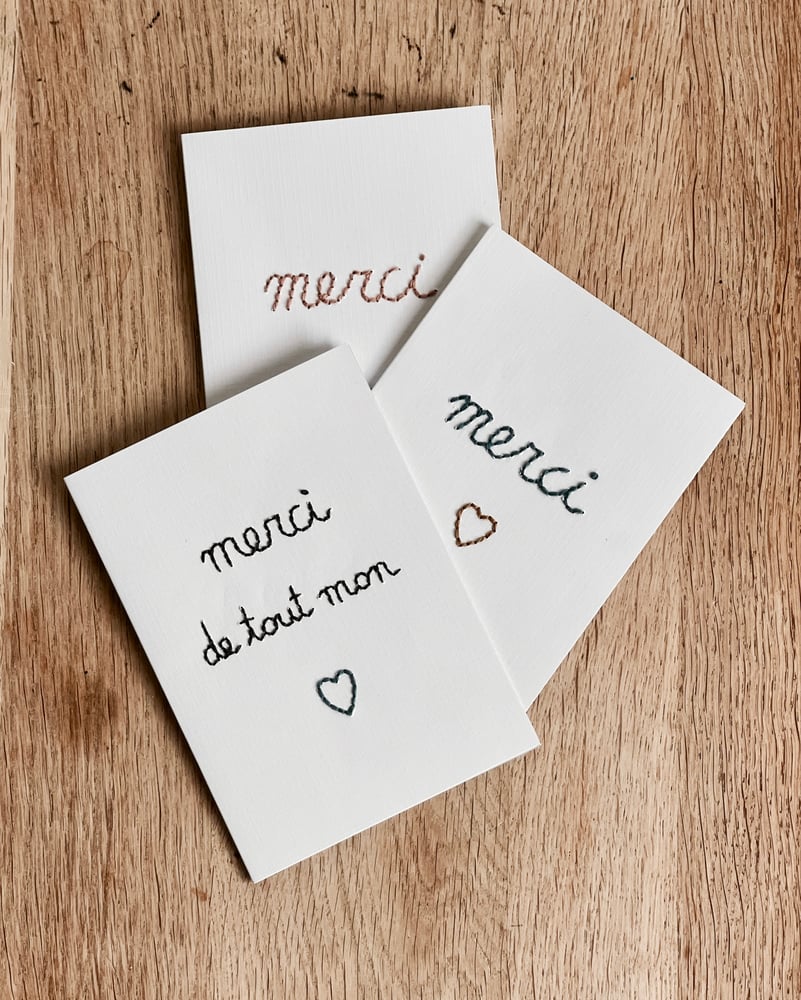 merci
merci
merci
de tout mon